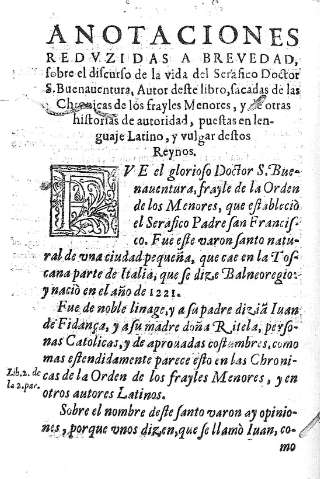 ANOTACIONES
REDVZIDAS A BREVEDAD,
sobre el discurso de la vida del Serafico Doctor
S. Buenaventura, Autor deste libro, sacadas de las
Chronicas de los frayles Menores, y de otras
historias de autoridad, puestas en len-
guaje Latino, y vulgar destos
Reynos.
FVE el glorioso Doctor S. Bue-
naventura, frayle de la Orden
de los Menores, que estableciò
el Serafico Padre san Francis-
co. Fue este varon santo natu-
ral de vna ciudad pequeña, que cae en la Tos-
cana parte de Italia, que se dize Balneoregio:
y naciò en el año de 1221.
Fue de noble linage, y a su padre dizia Iuan
de Fidança, y a su madre doña Ritela, perso-
nas Catolicas, y de aprouadas costumbres, como
mas estendidamente parece esto en las Chroni-
Lib. 2. de
la 2. par.
cas de la Orden de los frayles Menores, y en
otros autores Latinos.
Sobre el nombre deste santo varon ay opinio-
nes, porque vnos dizen, que se llamò Iuan, co-
mo